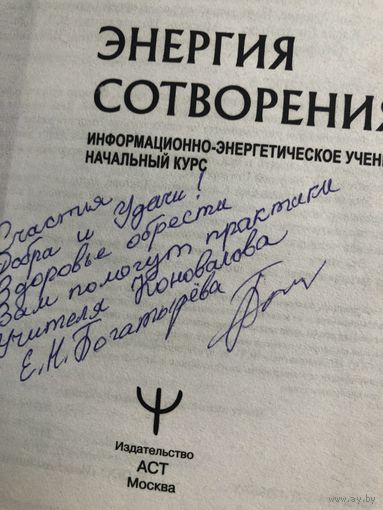 ЭНЕРГИЯ
СОТВОРЕНИЯ
ИНФОРМАЦИОННО-ЭНЕРГЕТИЧЕСКОЕ УЧЕН
НАЧАЛЬНЫЙ КУРС
Счастия
Добра и Удачи!
Здоровье обрести
Вам помогут практики
Учителя Коновалова
Е.Н. Богатырёва
Издательство
АСТ
Москва
www.ay.by